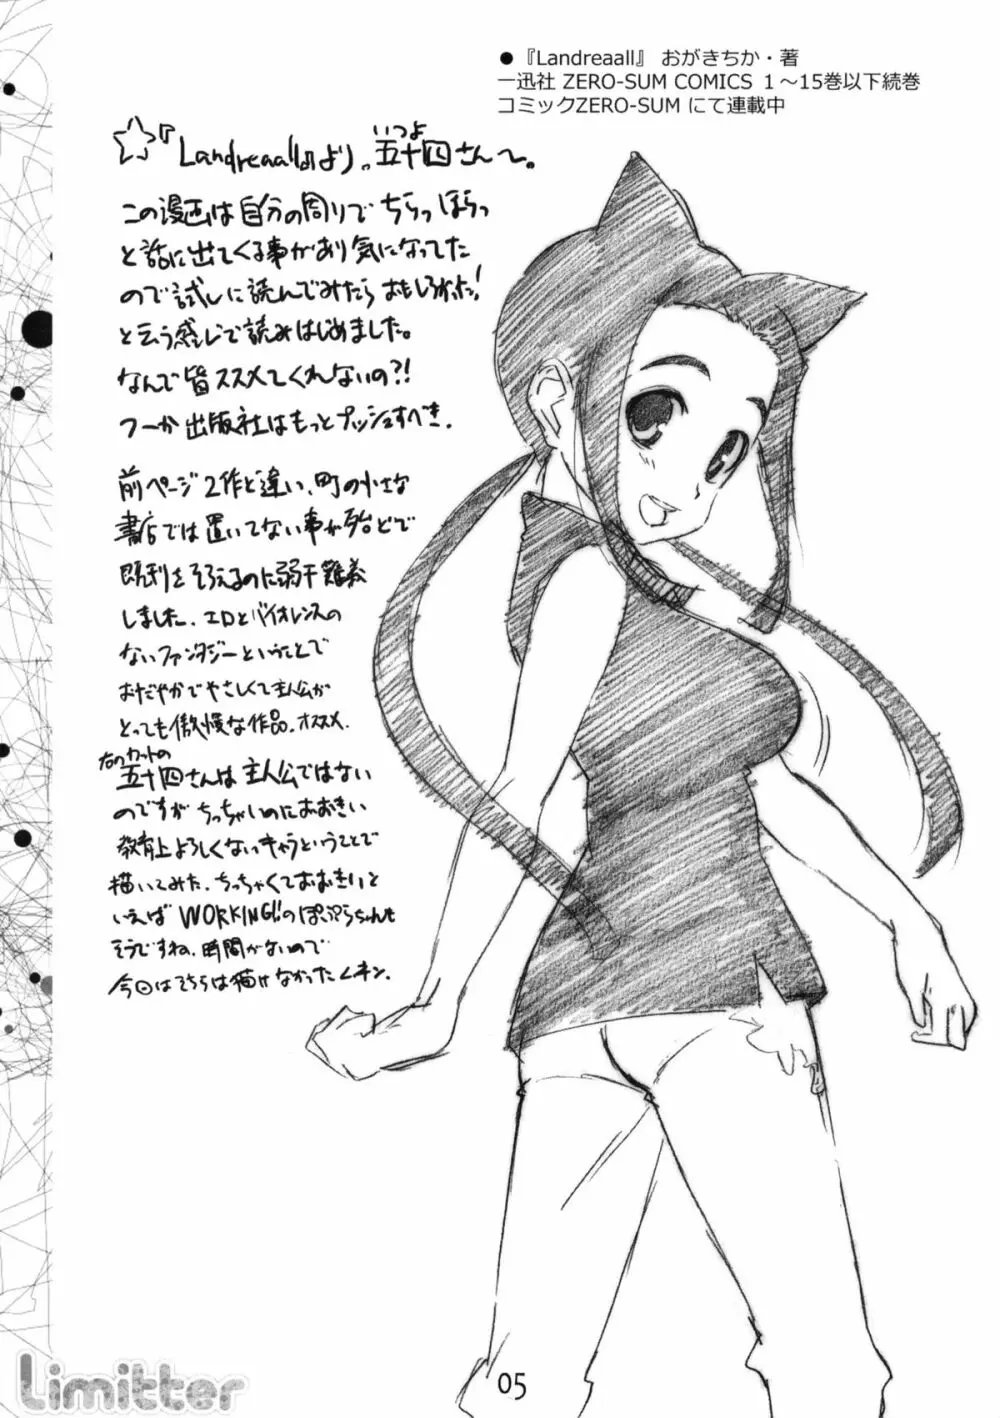 ●『Landreaall』 おがきちか・著
一迅社 ZERO-SUM COMICS 1～15巻以下続巻
コミックZERO-SUM にて連載中
いつよ
☆『Landreaall』より。五十四さん〜。
この漫画は自分の周りでちらっほらっ
と話に出てくる事があり気になってた
ので試しに読んでみたらおもしろかった!
と云う感じで読みはじめました。
なんで皆ススメてくれないの?!
つーか出版社はもっとプッシュすべき.
前ページ2作と違い、町の小さな
書店では置いてない事が殆どで
既刊をそろえるのに弱干難義
しました。エロとバイオレンスの
ないファンタジーということで
おだやかでやさしくて主人公が
とっても傲慢な作品。オススメ.
右のカットの
五十四さんは主人公ではない
のですがちっちゃいのにおおきい
教育上よろしくないキャラということで
描いてみた。ちっちゃくておおきいと
いえばWORKING!!のぽぷらちゃんも
そうですね。時間がないので
今回はそちらは描けなかったムネン.
05
Limitter